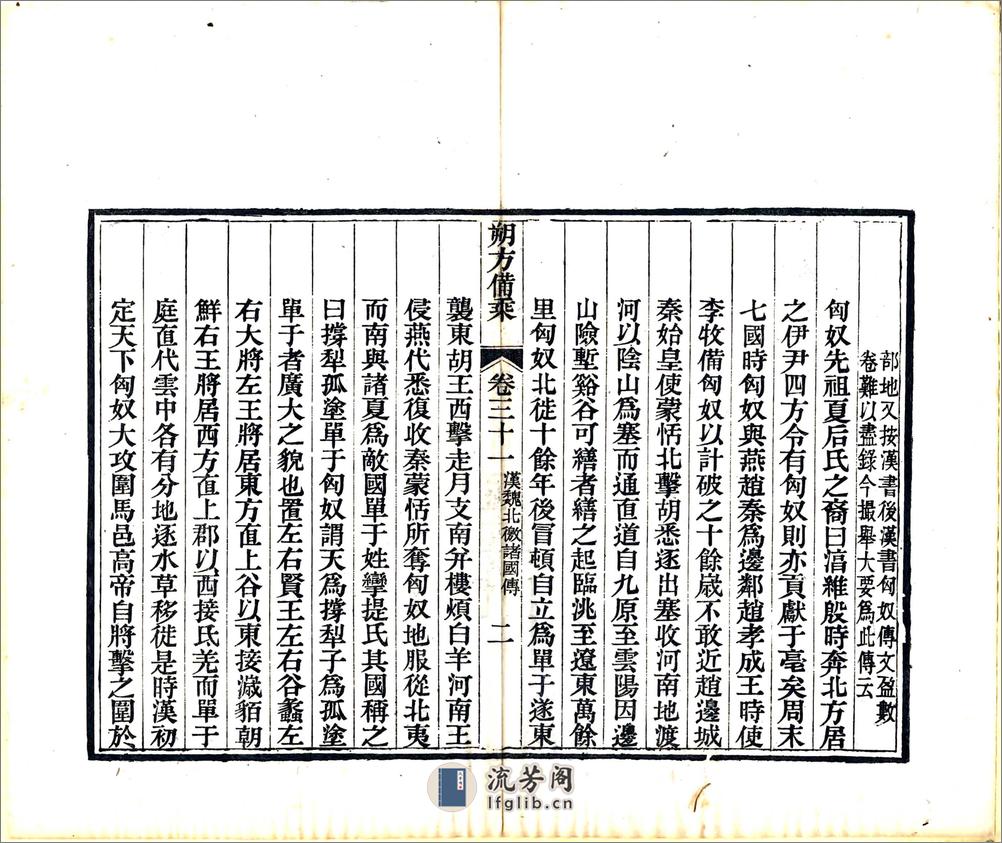 部地又按漢書後漢書匈奴傳文盈數
卷難以盡錄今撮舉大要爲此傳云
匈奴先祖夏后氏之裔曰淳維殷時奔北方居
之伊尹四方令有匈奴則亦貢獻于亳矣周末
七國時匈奴與燕趙秦爲邊鄰趙孝成王時使
李牧備匈奴以計破之十餘歲不敢近趙邊城
秦始皇使蒙恬北擊胡悉逐出塞收河南地渡
河以陰山爲塞而通直道自九原至雲陽因邊
山險壍谿谷可繕者繕之起臨洮至遼東萬餘
里匈奴北徙十餘年後冒頓自立爲單于遂東
朔方備乘
卷三十一
漢魏北徼諸國傳
二
襲東胡王西擊走月支南幷樓煩白羊河南王
侵燕代悉復收秦蒙恬所奪匈奴地服從北夷
而南與諸夏爲敵國單于姓攣提氏其國稱之
曰撐犁孤塗單于匈奴謂天爲撐犁子爲孤塗
單于者廣大之貌也置左右賢王左右谷蠡左
右大將左王將居東方直上谷以東接濊貊朝
鮮右王將居西方直上郡以西接氐羌而單于
庭直代雲中各有分地逐水草移徙是時漢初
定天下匈奴大攻圍馬邑高帝自將擊之圍於
流芳阁
lfglib.cn